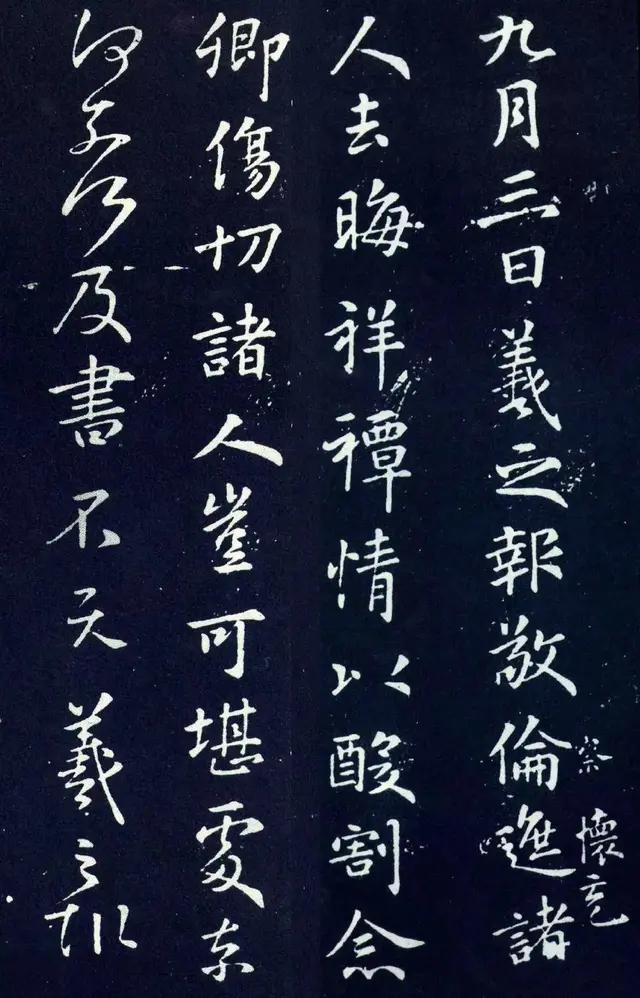 九月三日羲之報敬倫遮諸
察懷充
人去晦祥禫情以酸割念
卿傷切諸人豈可堪處奈
何奈何及書不一一羲之報